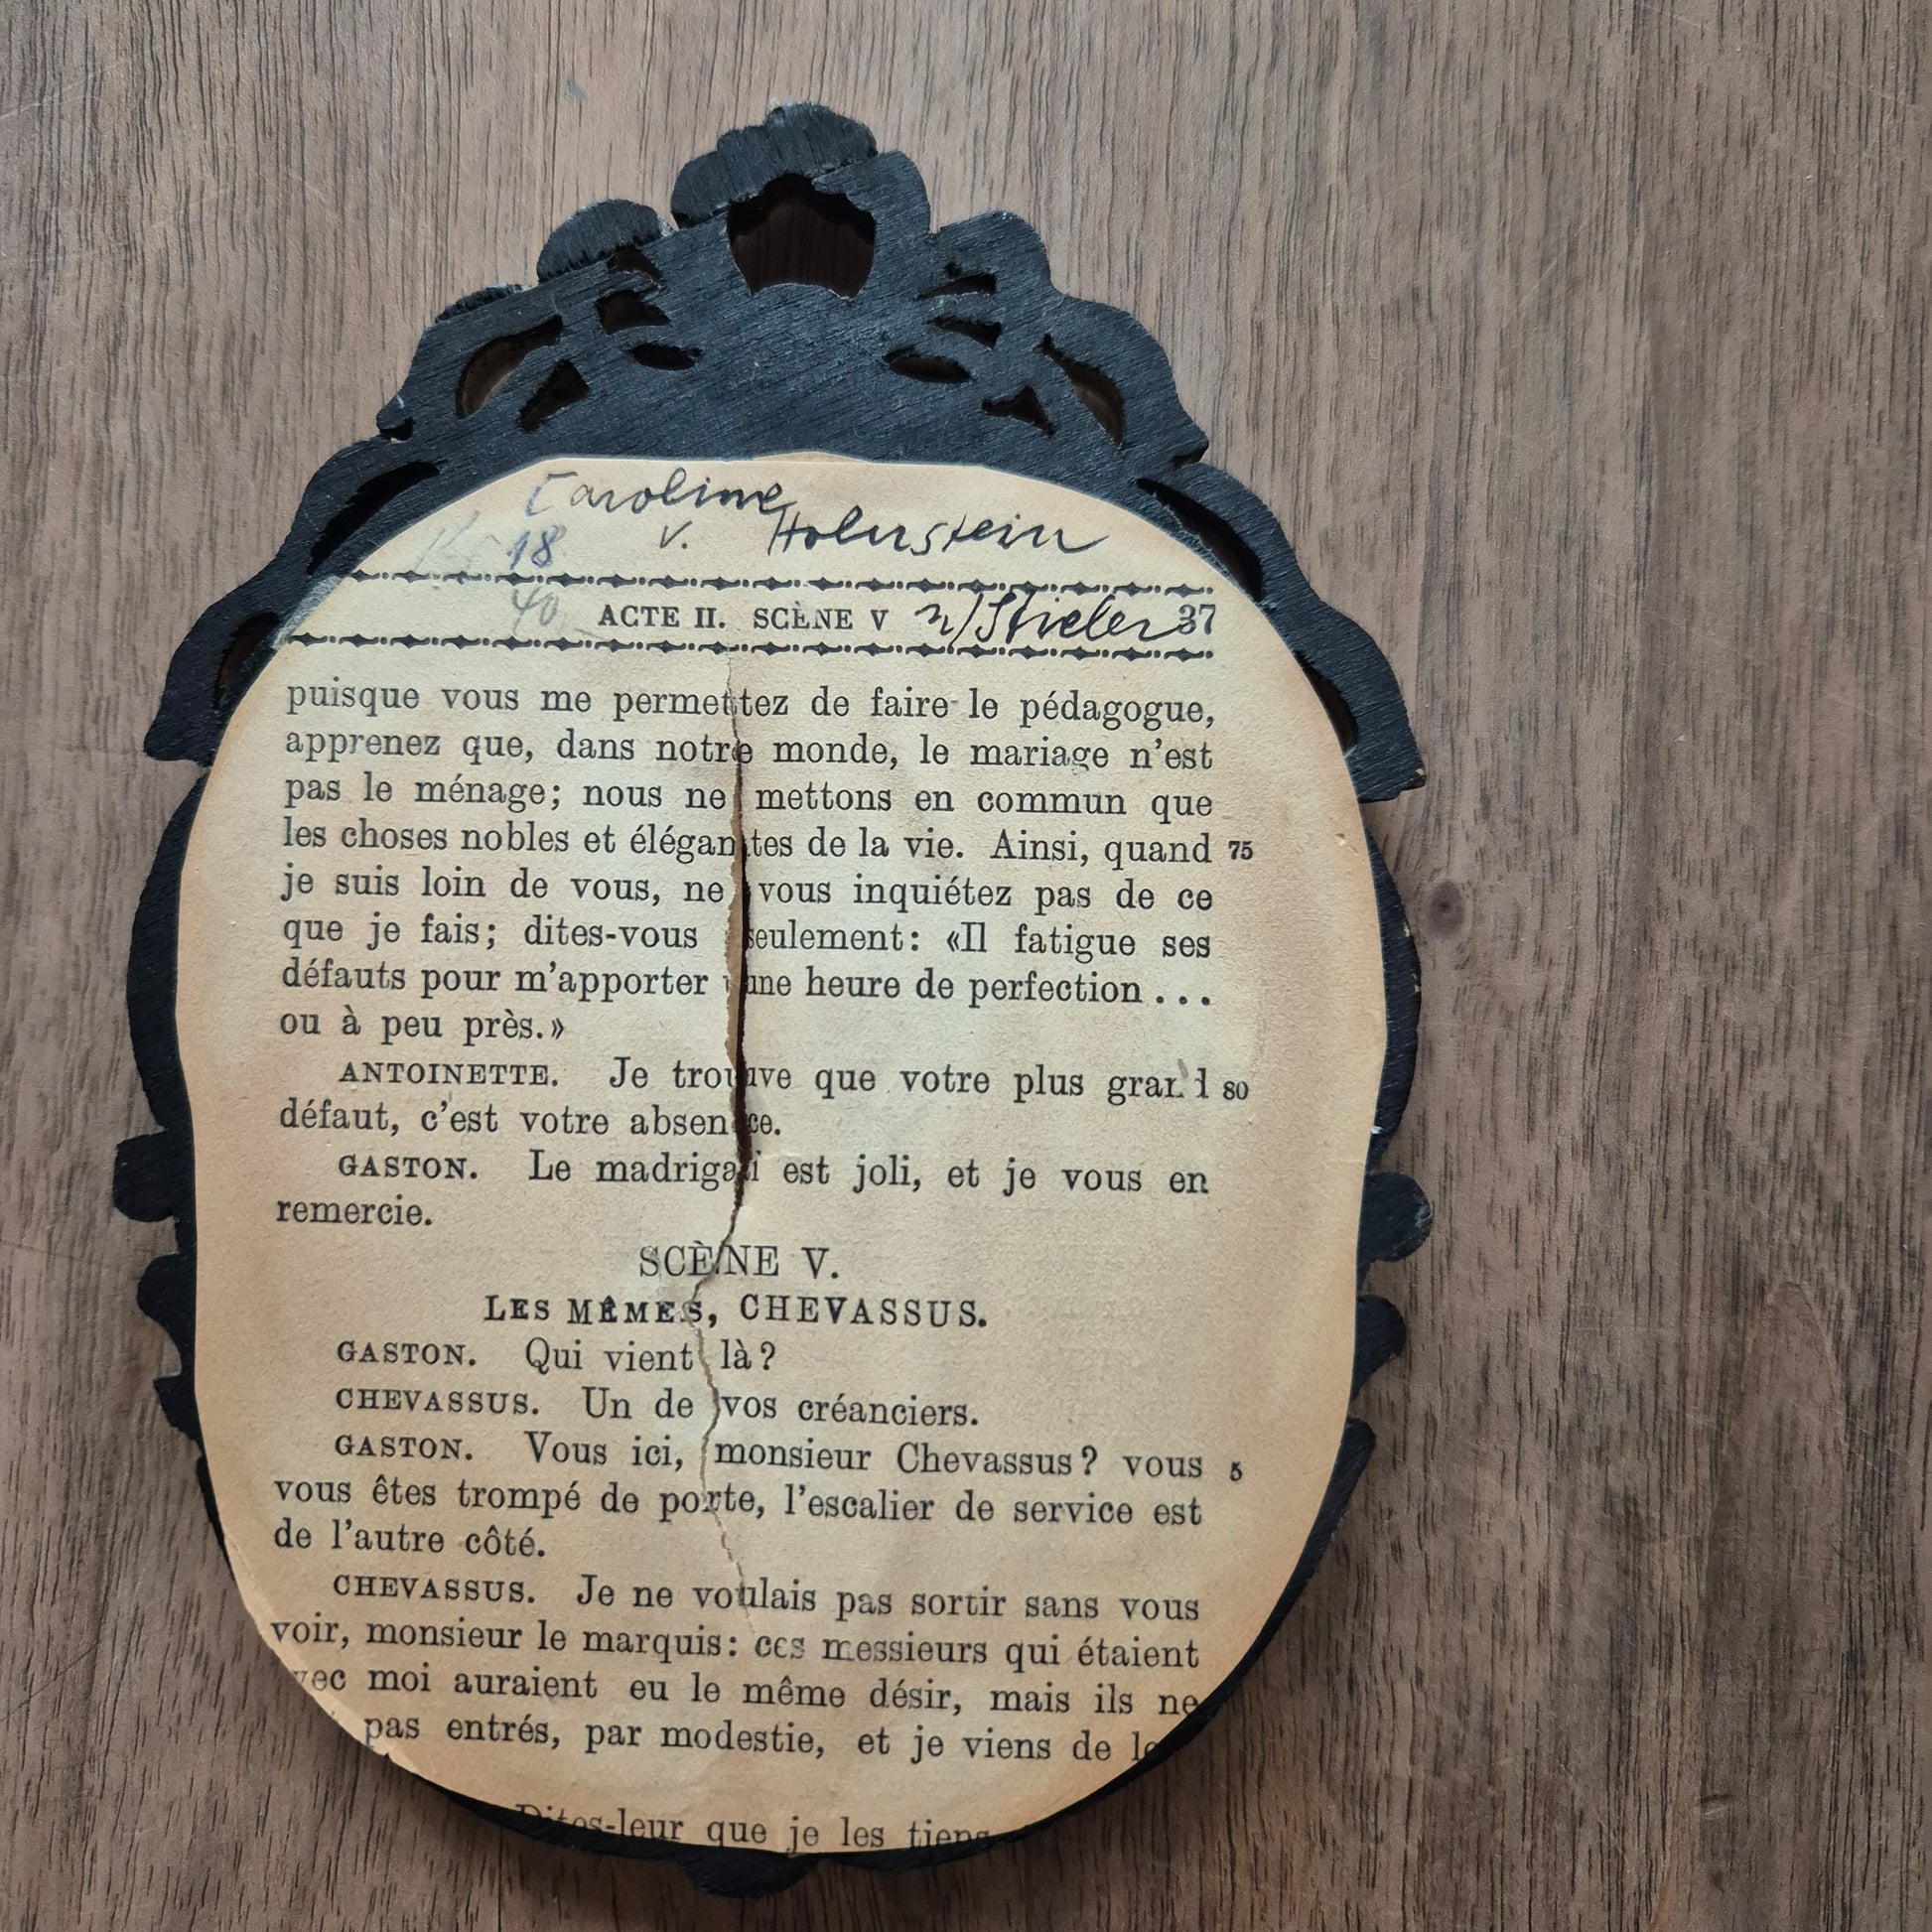 Caroline
18 v. Holnstein
40 ACTE II. SCÈNE V n/Stieler 37
puisque vous me permettez de faire le pédagogue,
apprenez que, dans notre monde, le mariage n'est
pas le ménage; nous ne mettons en commun que
les choses nobles et élégantes de la vie. Ainsi, quand 75
je suis loin de vous, ne vous inquiétez pas de ce
que je fais; dites-vous seulement: «Il fatigue ses
défauts pour m'apporter une heure de perfection ...
ou à peu près.»
ANTOINETTE. Je trouve que votre plus grand 80
défaut, c'est votre absence.
GASTON. Le madrigal est joli, et je vous en
remercie.
SCÈNE V.
LES MÊMES, CHEVASSUS.
GASTON. Qui vient là?
CHEVASSUS. Un de vos créanciers.
GASTON. Vous ici, monsieur Chevassus? vous 5
vous êtes trompé de porte, l'escalier de service est
de l'autre côté.
CHEVASSUS. Je ne voulais pas sortir sans vous
voir, monsieur le marquis: ces messieurs qui étaient
avec moi auraient eu le même désir, mais ils ne
pas entrés, par modestie, et je viens de
Dites-leur que je les tiens